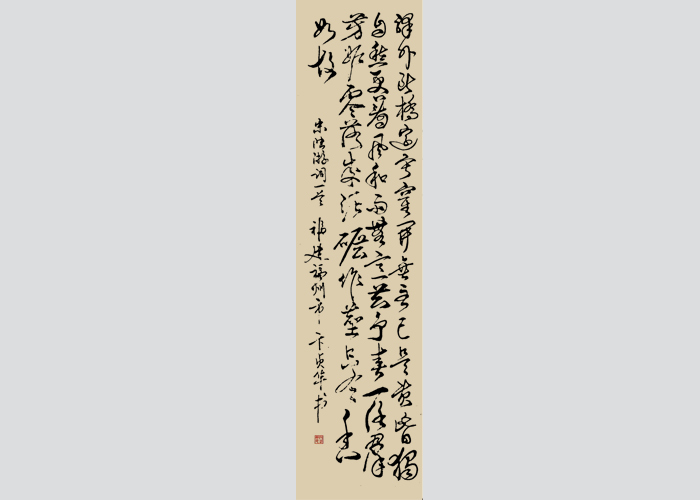 驛外断橋边寂寞開無主已是黄昏獨
自愁更著風和雨無意苦争春一任群
芳妒零落成泥碾作塵只有香
如故
宋陆游词一首 福建福州